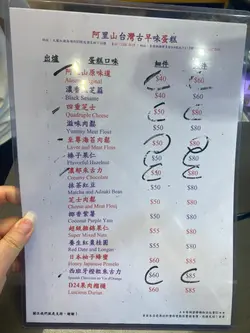 阿里山台灣古早味蛋糕
出爐 蛋糕口味
阿里山原味道 $40 $60
Alishan Original
濃香黑芝麻 $50 $80
Black Sesame
四重芝士 $50 $80
Quadruple Cheese
滋味肉鬆 $50 $80
Yummy Meat Floss
至尊海苔肉鬆 $50 $80
Laver and Meat Floss
榛子果仁 $50 $80
Flavorful Hazelnut
濃郁朱古力 $50 $80
Creamy Chocolate
抹茶紅豆 $50 $80
Matcha and Adzuki Bean
芝士肉鬆 $50 $80
Cheese and Meat Floss
椰香紫薯 $50 $80
Coconut Purple Yam
超級雜錦果仁 $50 $80
Super Mixed Nuts
養生紅棗桂圓 $50 $80
Red Date and Longan
日本柚子蜂蜜 $60 $85
Honey Japanese Pomelo
西班牙橙軟朱古力 $60 $85
Spanish Chocolate w/ Via d'Orange
D24果肉榴槤 $60 $85
Luscious Durian